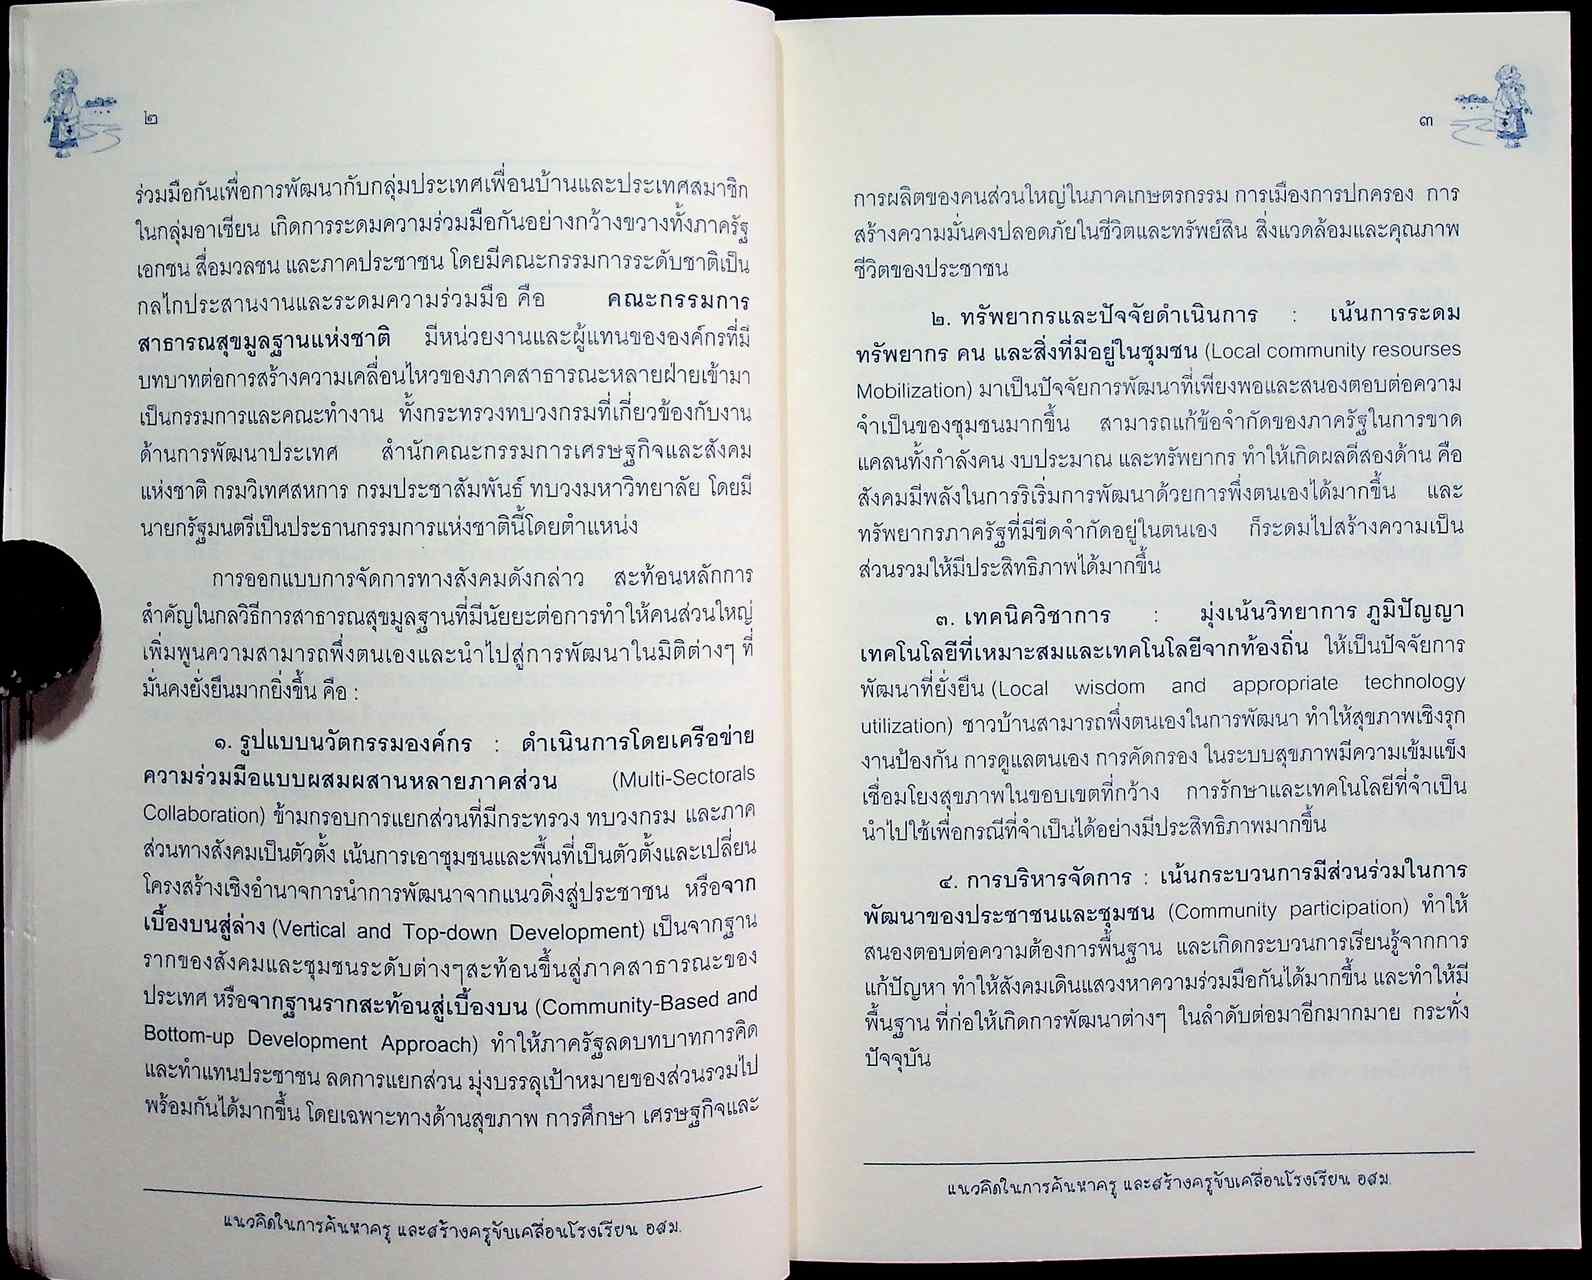 ๒
ร่วมมือกันเพื่อการพัฒนากับกลุ่มประเทศเพื่อนบ้านและประเทศสมาชิก
ในกลุ่มอาเซียน เกิดการระดมความร่วมมือกันอย่างกว้างขวางทั้งภาครัฐ
เอกชน สื่อมวลชน และภาคประชาชน โดยมีคณะกรรมการระดับชาติเป็น
กลไกประสานงานและระดมความร่วมมือ คือ คณะกรรมการ
สาธารณสุขมูลฐานแห่งชาติ มีหน่วยงานและผู้แทนขององค์กรที่มี
บทบาทต่อการสร้างความเคลื่อนไหวของภาคสาธารณะหลายฝ่ายเข้ามา
เป็นกรรมการและคณะทำงาน ทั้งกระทรวงทบวงกรมที่เกี่ยวข้องกับงาน
ด้านการพัฒนาประเทศ สำนักคณะกรรมการเศรษฐกิจและสังคม
แห่งชาติ กรมวิเทศสหการ กรมประชาสัมพันธ์ ทบวงมหาวิทยาลัย โดยมี
นายกรัฐมนตรีเป็นประธานกรรมการแห่งชาตินี้โดยตำแหน่ง
การออกแบบการจัดการทางสังคมดังกล่าว สะท้อนหลักการ
สำคัญในกลวิธีการสาธารณสุขมูลฐานที่มีนัยยะต่อการทำให้คนส่วนใหญ่
เพิ่มพูนความสามารถพึ่งตนเองและนำไปสู่การพัฒนาในมิติต่างๆ ที่
มั่นคงยั่งยืนมากยิ่งขึ้น คือ :
๑. รูปแบบนวัตกรรมองค์กร : ดำเนินการโดยเครือข่าย
ความร่วมมือแบบผสมผสานหลายภาคส่วน (Multi-Sectorals
Collaboration) ข้ามกรอบการแยกส่วนที่มีกระทรวง ทบวงกรม และภาค
ส่วนทางสังคมเป็นตัวตั้ง เน้นการเอาชุมชนและพื้นที่เป็นตัวตั้งและเปลี่ยน
โครงสร้างเชิงอำนาจการนำการพัฒนาจากแนวดิ่งสู่ประชาชน หรือจาก
เบื้องบนสู่ล่าง (Vertical and Top-down Development) เป็นจากฐาน
รากของสังคมและชุมชนระดับต่างๆสะท้อนขึ้นสู่ภาคสาธารณะของ
ประเทศ หรือจากฐานรากสะท้อนสู่เบื้องบน (Community-Based and
Bottom-up Development Approach) ทำให้ภาครัฐลดบทบาทการคิด
และทำแทนประชาชน ลดการแยกส่วน มุ่งบรรลุเป้าหมายของส่วนรวมไป
พร้อมกันได้มากขึ้น โดยเฉพาะทางด้านสุขภาพ การศึกษา เศรษฐกิจและ
แนวคิดในการค้นหาครู และสร้างครูขับเคลื่อนโรงเรียน อสม.
๓
การผลิตของคนส่วนใหญ่ในภาคเกษตรกรรม การเมืองการปกครอง การ
สร้างความมั่นคงปลอดภัยในชีวิตและทรัพย์สิน สิ่งแวดล้อมและคุณภาพ
ชีวิตของประชาชน
๒. ทรัพยากรและปัจจัยดำเนินการ : เน้นการระดม
ทรัพยากร คน และสิ่งที่มีอยู่ในชุมชน (Local community resourses
Mobilization) มาเป็นปัจจัยการพัฒนาที่เพียงพอและสนองตอบต่อความ
จำเป็นของชุมชนมากขึ้น สามารถแก้ข้อจำกัดของภาครัฐในการขาด
แคลนทั้งกำลังคน งบประมาณ และทรัพยากร ทำให้เกิดผลดีสองด้าน คือ
สังคมมีพลังในการริเริ่มการพัฒนาด้วยการพึ่งตนเองได้มากขึ้น และ
ทรัพยากรภาครัฐที่มีขีดจำกัดอยู่ในตนเอง ก็ระดมไปสร้างความเป็น
ส่วนรวมให้มีประสิทธิภาพได้มากขึ้น
๓. เทคนิควิชาการ : มุ่งเน้นวิทยาการ ภูมิปัญญา
เทคโนโลยีที่เหมาะสมและเทคโนโลยีจากท้องถิ่น ให้เป็นปัจจัยการ
พัฒนาที่ยั่งยืน (Local wisdom and appropriate technology
utilization) ชาวบ้านสามารถพึ่งตนเองในการพัฒนา ทำให้สุขภาพเชิงรุก
งานป้องกัน การดูแลตนเอง การคัดกรอง ในระบบสุขภาพมีความเข้มแข็ง
เชื่อมโยงสุขภาพในขอบเขตที่กว้าง การรักษาและเทคโนโลยีที่จำเป็น
นำไปใช้เพื่อกรณีที่จำเป็นได้อย่างมีประสิทธิภาพมากขึ้น
๔. การบริหารจัดการ : เน้นกระบวนการมีส่วนร่วมในการ
พัฒนาของประชาชนและชุมชน (Community participation) ทำให้
สนองตอบต่อความต้องการพื้นฐาน และเกิดกระบวนการเรียนรู้จากการ
แก้ปัญหา ทำให้สังคมเดินแสวงหาความร่วมมือกันได้มากขึ้น และทำให้มี
พื้นฐาน ที่ก่อให้เกิดการพัฒนาต่างๆ ในลำดับต่อมาอีกมากมาย กระทั่ง
ปัจจุบัน
แนวคิดในการค้นหาครู และสร้างครูขับเคลื่อนโรงเรียน อสม.